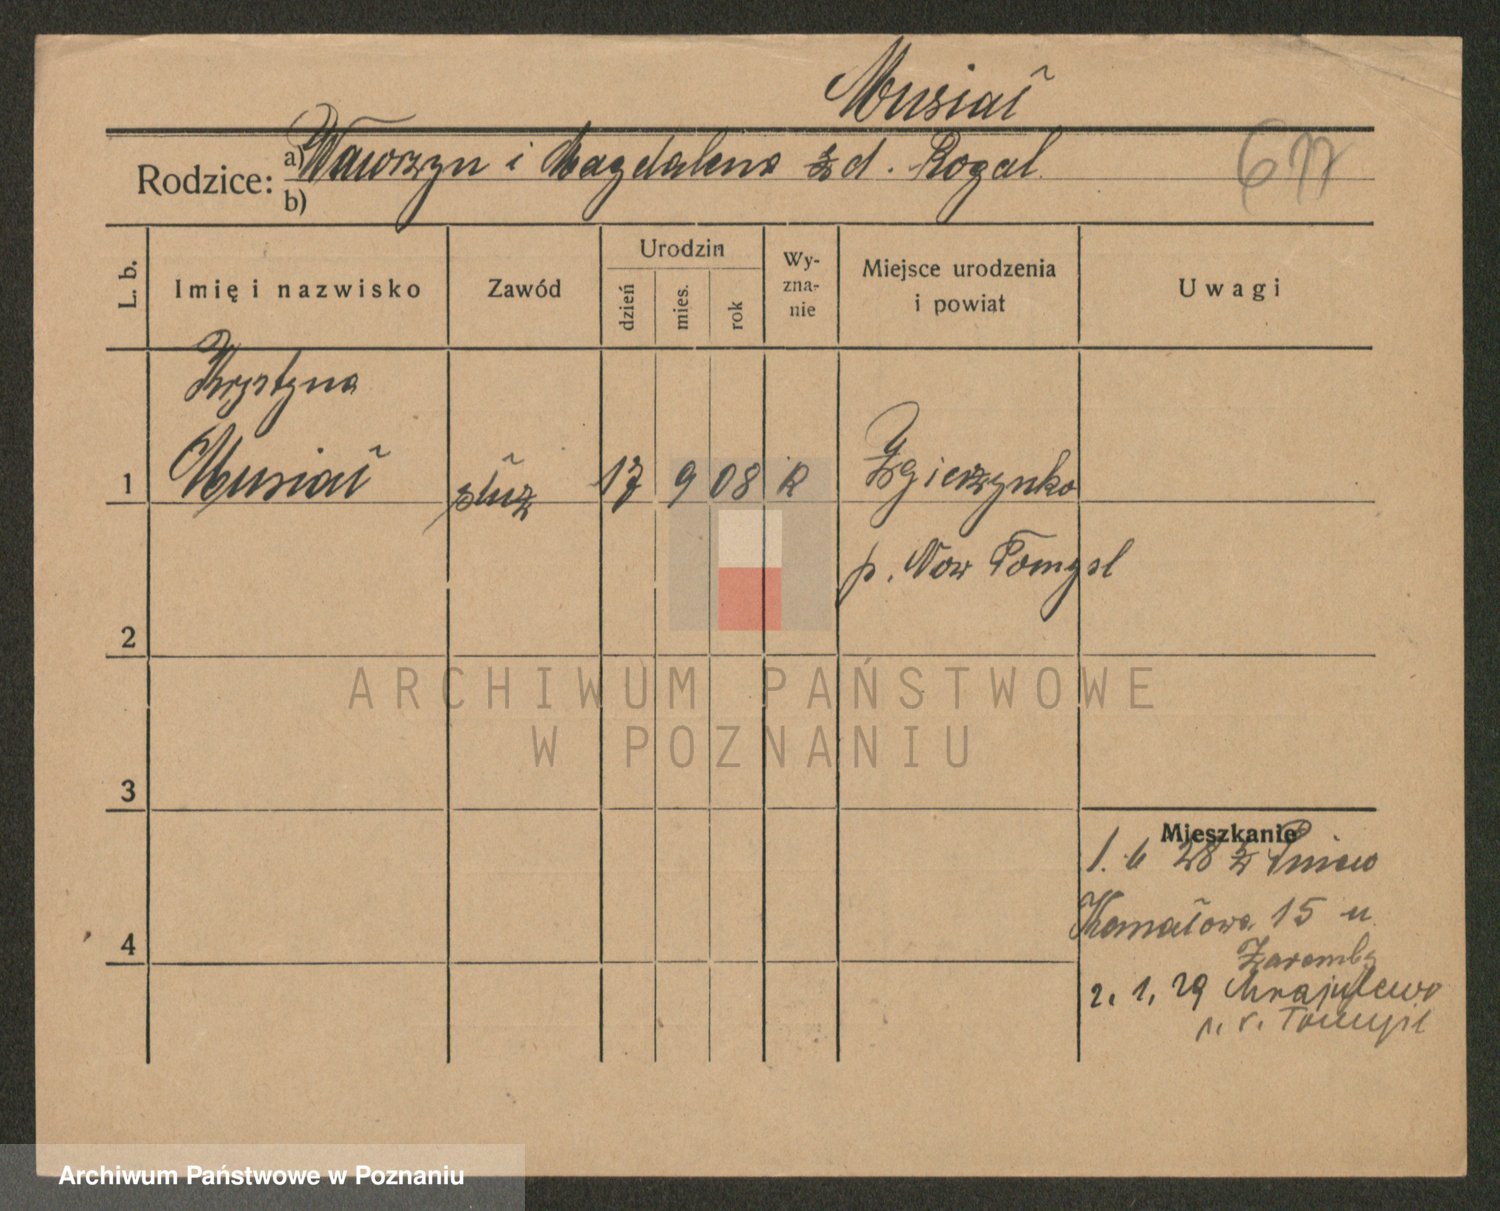 Musiał
Rodzice: a) Wawrzyn i Magdalena z d. Rogal
b)
677
L. b.
Imię i nazwisko
Zawód
Urodzin
dzień
mies.
rok
Wy-
zna-
nie
Miejsce urodzenia
i powiat
Uwagi
Krystyna
1 Musiał służ 17 9 08 R Zgierzynko
p. Now Tomysl
2
3
4
Mieszkanie
1. 6 28 z Pniew
15 u
Zaremby
2. 1. 29
Tomysl
ARCHIWUM PAŃSTWOWE
W POZNANIU
Archiwum Państwowe w Poznaniu